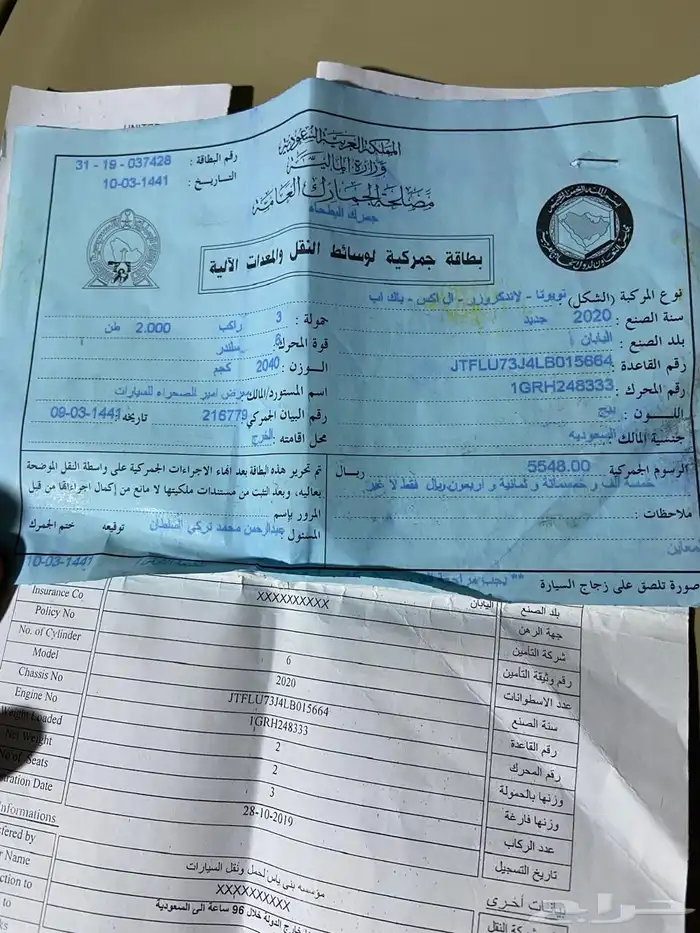 المملكة العربية السعودية
وزارة المالية
مصلحة الجمارك العامة
جمرك البطحاء
رقم البطاقة : 31 - 19 - 037428
التاريخ : 10-03-1441
بطاقة جمركية لوسائط النقل والمعدات الآلية
نوع المركبة (الشكل) تويوتا - لاندكروزر - ال اكس - باك اب
سنة الصنع : 2020 جديد
حمولة : 3 راكب 2.000 طن
بلد الصنع : اليابان
قوة المحرك: 6 سلندر
رقم القاعدة : JTFLU73J4LB015664
الوزن : 2040 كجم
رقم المحرك : 1GRH248333
اسم المستورد/المالك: معرض امير الصحراء للسيارات
اللون : بيج
رقم البيان الجمركي: 216779 تاريخه: 09-03-1441
جنسية المالك السعوديه
محل اقامته : الخرج
الرسوم الجمركية 5548.00 ريال
خمسة الف و خمسمائة و ثمانية و أربعون ريال فقط لا غير
ملاحظات :
تم تحرير هذه البطاقة بعد انهاء الاجراءات الجمركية على واسطة النقل الموضحة
بعاليه، وبعد التثبت من مستندات ملكيتها لا مانع من إكمال اجراءاتها من قبل
المرور بإسم
المسئول عبدالرحمن محمد تركي السلطان توقيعه ختم الجمرك
10-03-1441
صورة تلصق على زجاج السيارة
** يجب مراجعة
بلد الصنع اليابان
جهة الرهن XXXXXXXXXX
Insurance Co شركة التأمين
Policy No رقم وثيقة التأمين
No. of Cylinder 6 عدد الاسطوانات
Model 2020 سنة الصنع
Chassis No JTFLU73J4LB015664 رقم القاعدة
Engine No 1GRH248333 رقم المحرك
Weight Loaded 2 وزنها بالحمولة
Net Weight 2 وزنها فارغة
No of Seats 3 عدد الركاب
28-10-2019 تاريخ التسجيل
بيانات أخرى
مؤسسه بنى ياس لحمل ونقل السيارات
شركة النقل
XXXXXXXXXX
خارج الدولة خلال 96 ساعة الى السعودية
حراج